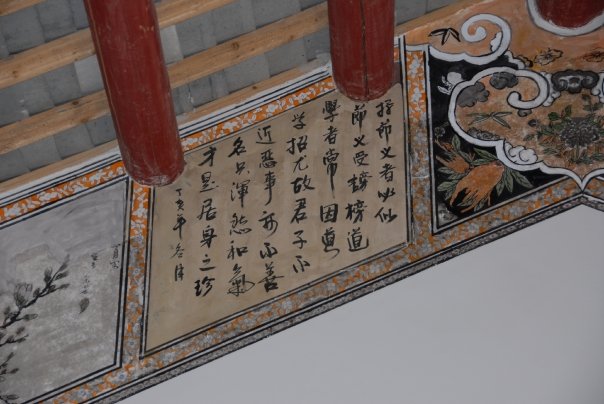 節义者必以
節义受謗榜道
學者常因道
学招尤故君子不
近惡事亦不善
名只渾然和氣
才是居身之珍
丁亥年冬月